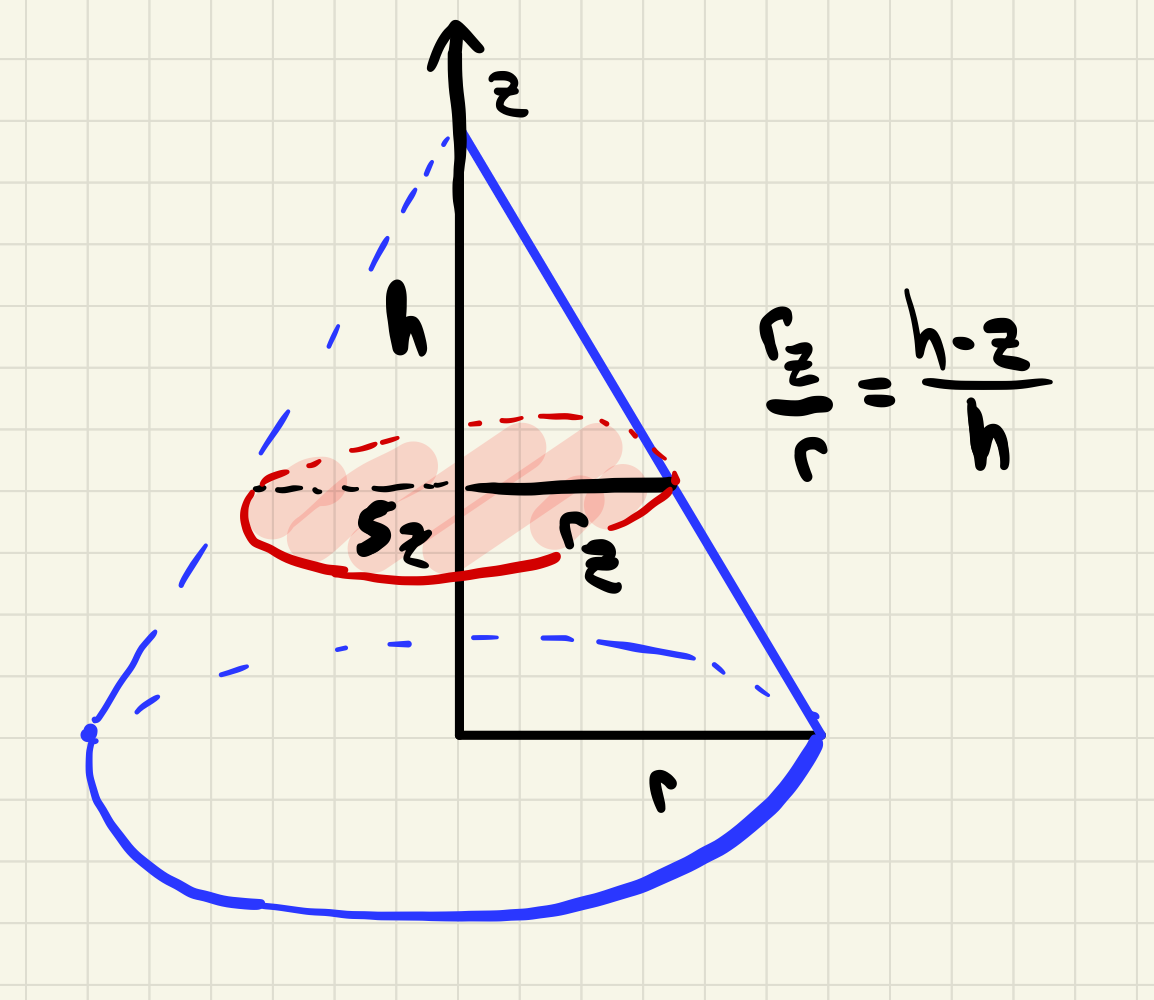 z
h
r_z / r = h - z / h
S_z
r_z
r